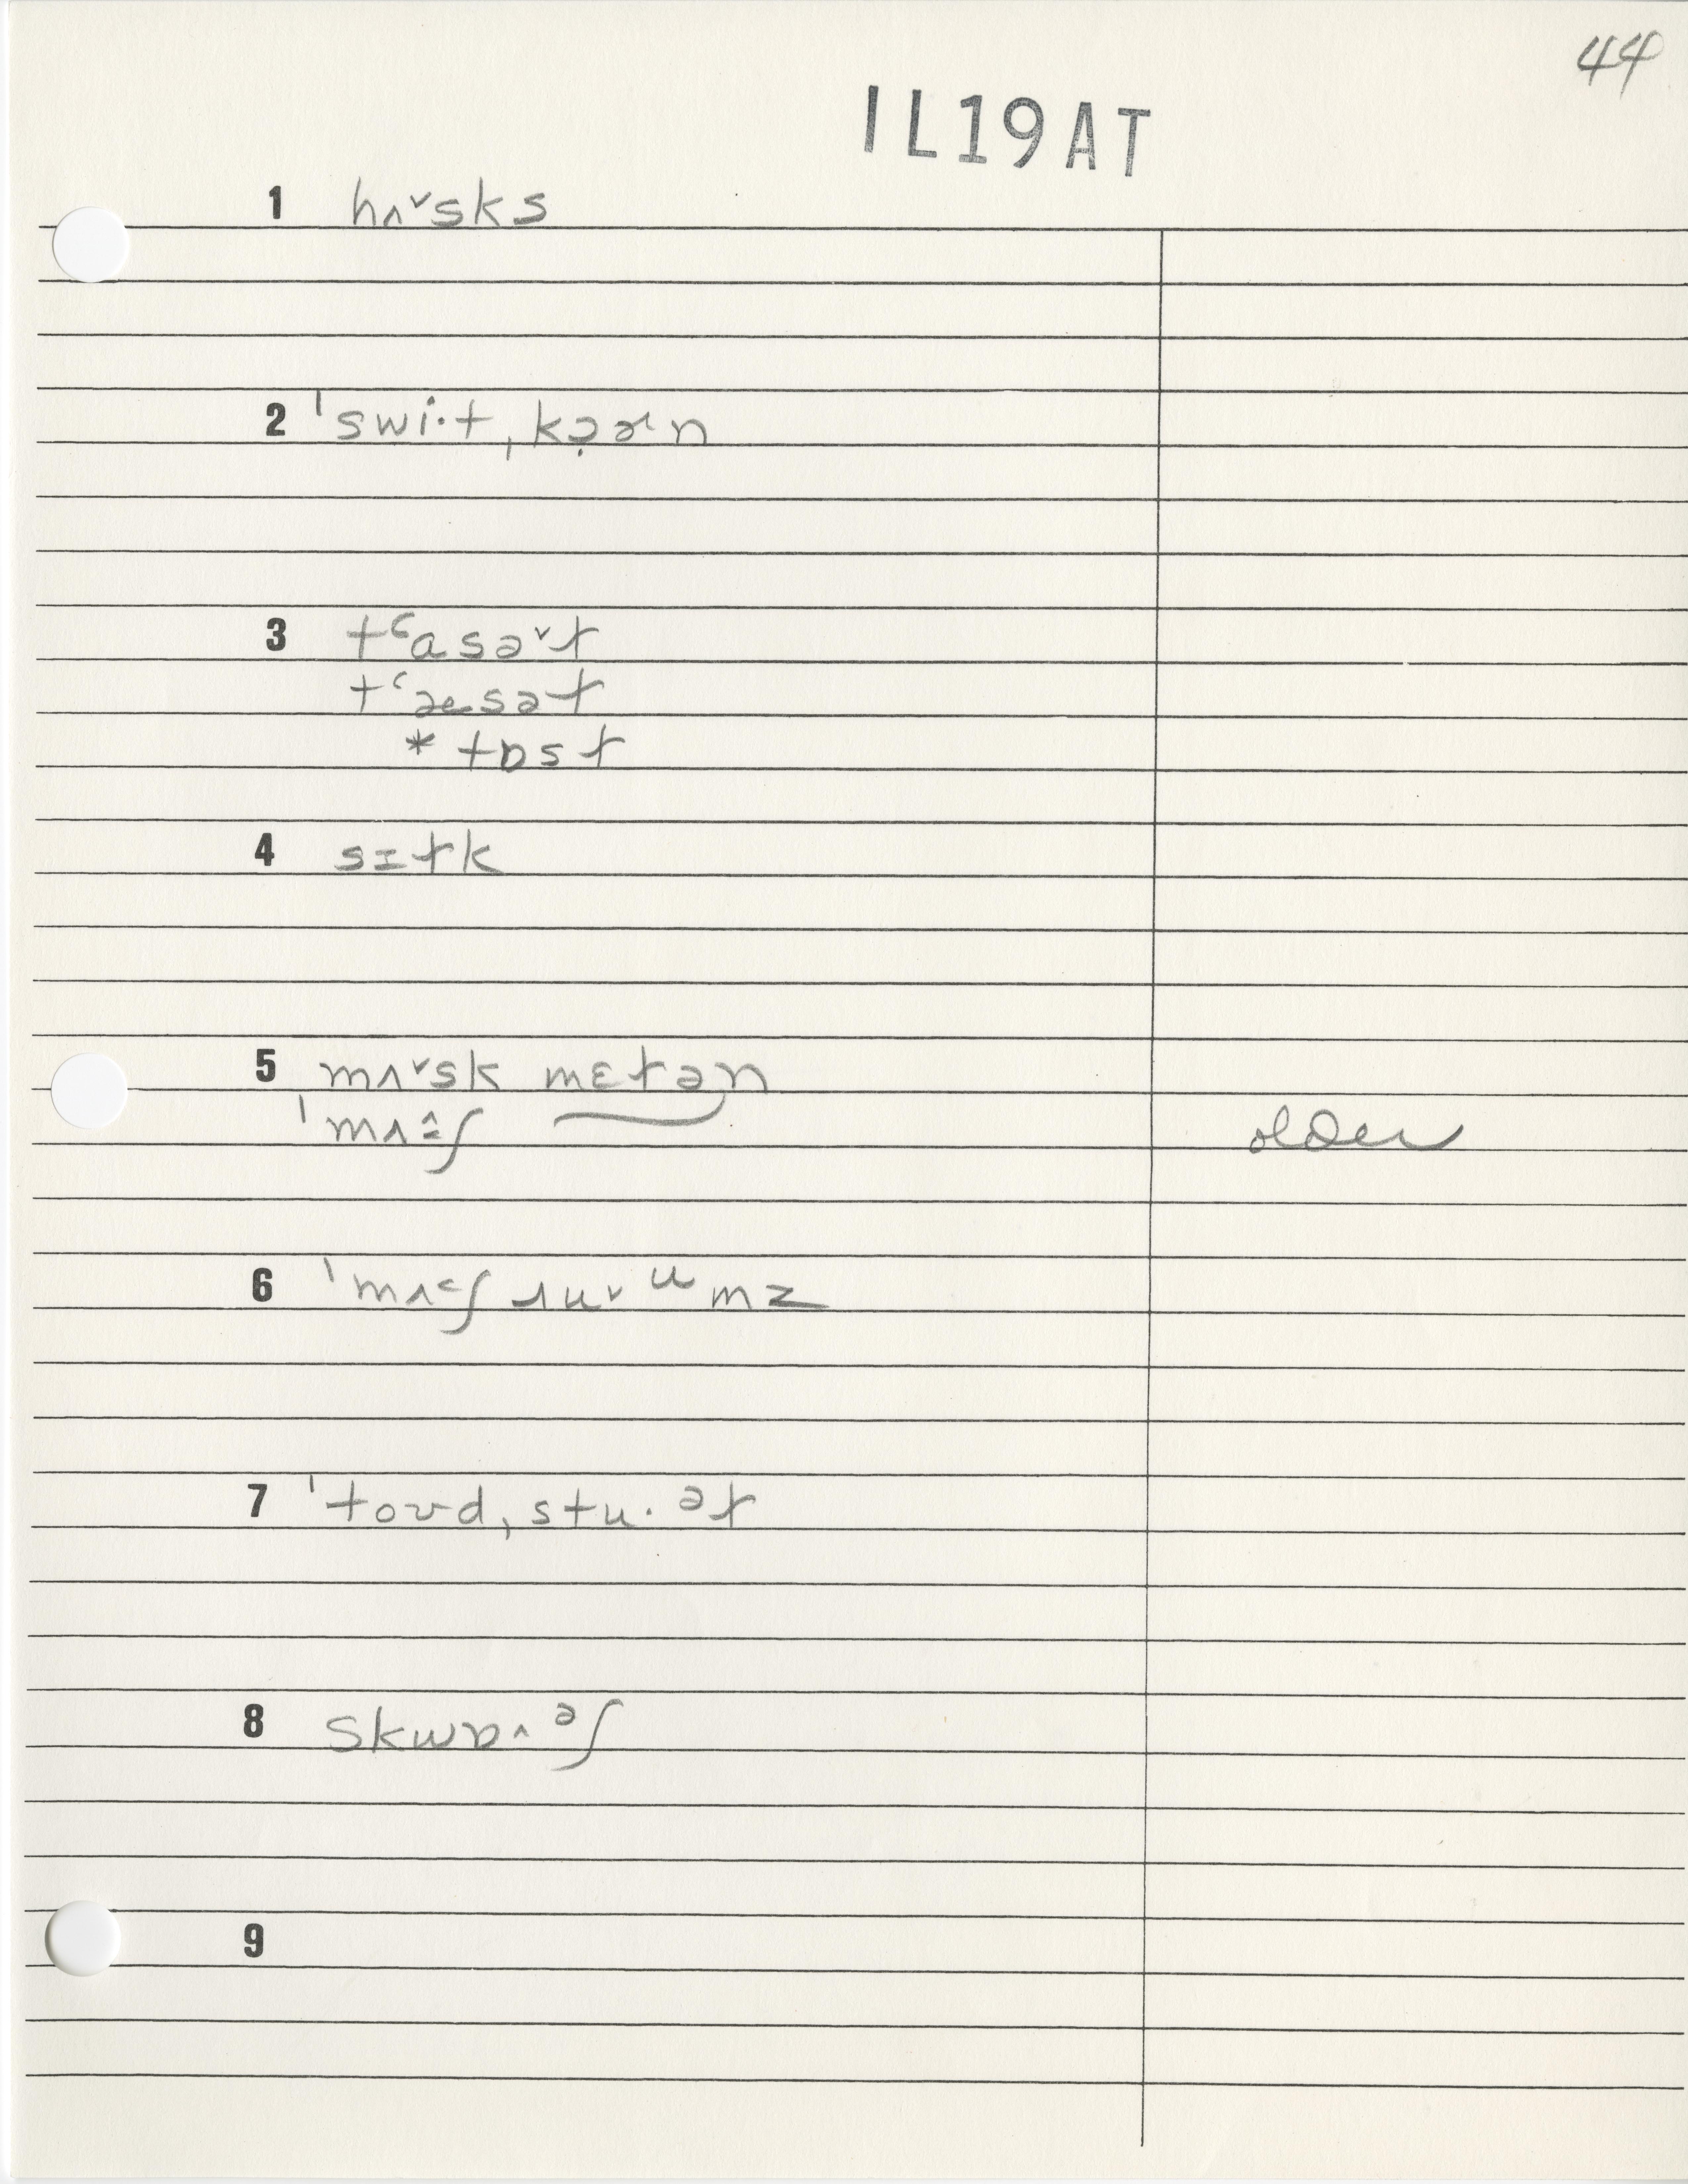 44
IL19AT
1 hʌ˅sks
2 ˈswi·t ˌkɔ̣ɚn
3 tʻasə˅ɫ
tʻæsəɫ
* tɒsɫ
4 sɪɫk
5 mʌ˅sk mɛɫən
ˈmʌ˄ʃ older
6 ˈmʌ˂ʃ ɹu˅ᵘmz
7 ˈtoʊdˌstu·ᵊɫ
8 skwɒ˄ᵊʃ
9